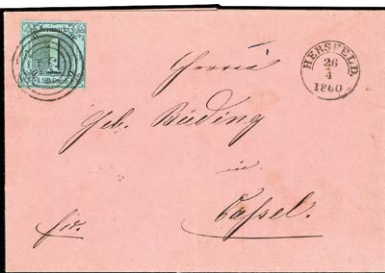 1
HERSFELD.
26
4
1860
Herrn
Geb. Büding
in
Cassel.
fr.